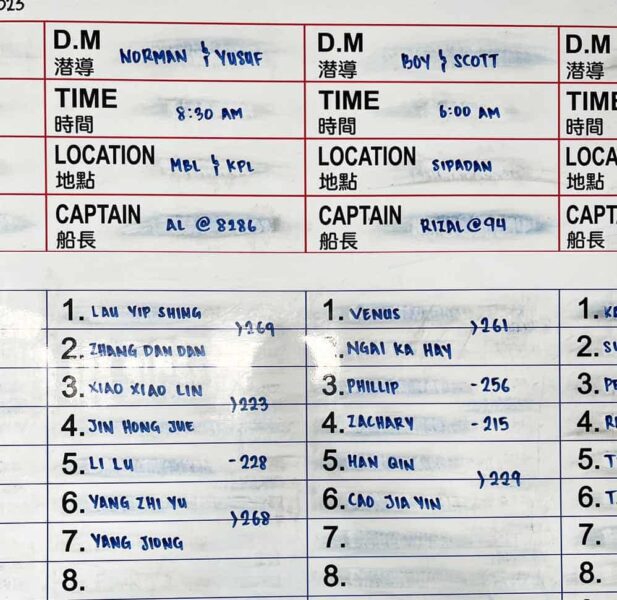 023
D.M NORMAN & YUSUF
潜導
TIME 8:30 AM
時間
LOCATION MBL & KPL
地點
CAPTAIN AL @ 8286
船長
1. LAU YIP SHING
2. ZHANG DAN DAN
)269
3. XIAO XIAO LIN
4. JIN HONG JUE
)223
5. LI LU -228
6. YANG ZHI YU
7. YANG JIONG
)268
8.
D.M BOY & SCOTT
潜導
TIME 6:00 AM
時間
LOCATION SIPADAN
地點
CAPTAIN RIZAL @ 94
船長
1. VENUS
. NGAI KA HAY
)261
3. PHILLIP -256
4. ZACHARY -215
5. HAN QIN
6. CAO JIA YIN
)229
7.
8.
D.M
潜導
TIME
時間
LOCA
地點
CAPT
船長
1.
2.
3.
4.
5. T
6. T
7.
8.